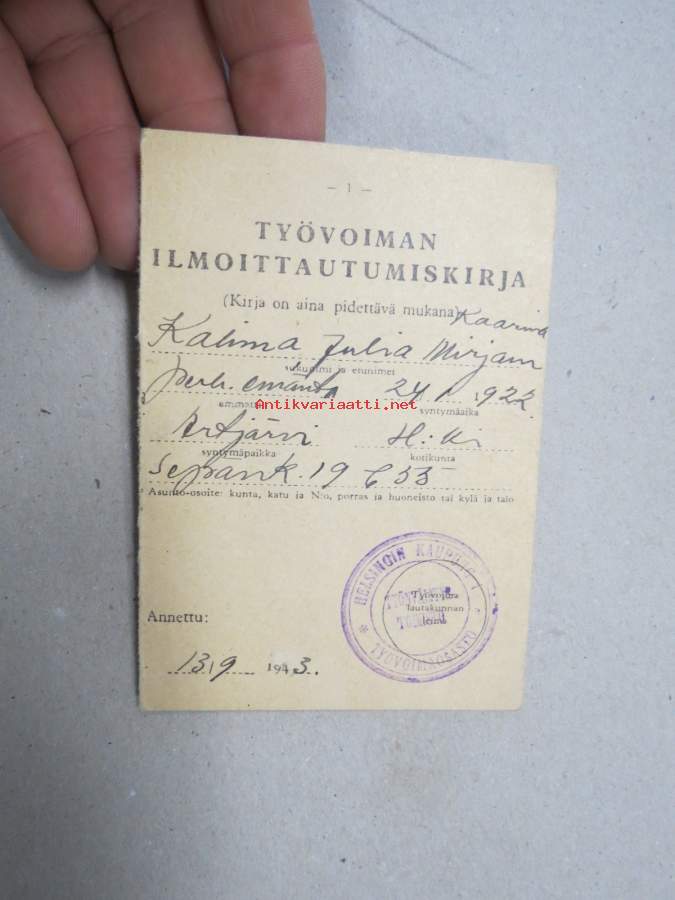 - 1 -
TYÖVOIMAN
ILMOITTAUTUMISKIRJA
(Kirja on aina pidettävä mukana) Kaarina
Kalima Julia Mirjam
sukunimi ja etunimet
perh. emäntä 24/1 1922
ammatti syntymäaika
Antikvariaatti.net
Artjärvi H:ki
syntymäpaikka kotikunta
Sepänk. 19 C 35
Asunto-osoite: kunta, katu ja N:o, porras ja huoneisto tai kylä ja talo
HELSINGIN KAUPUNGIN
TYÖNVÄLITYS
TOIMISTO
TYÖVOIMAOSASTO
Työvoima
lautakunnan
leima
Annettu:
13/9 1943.